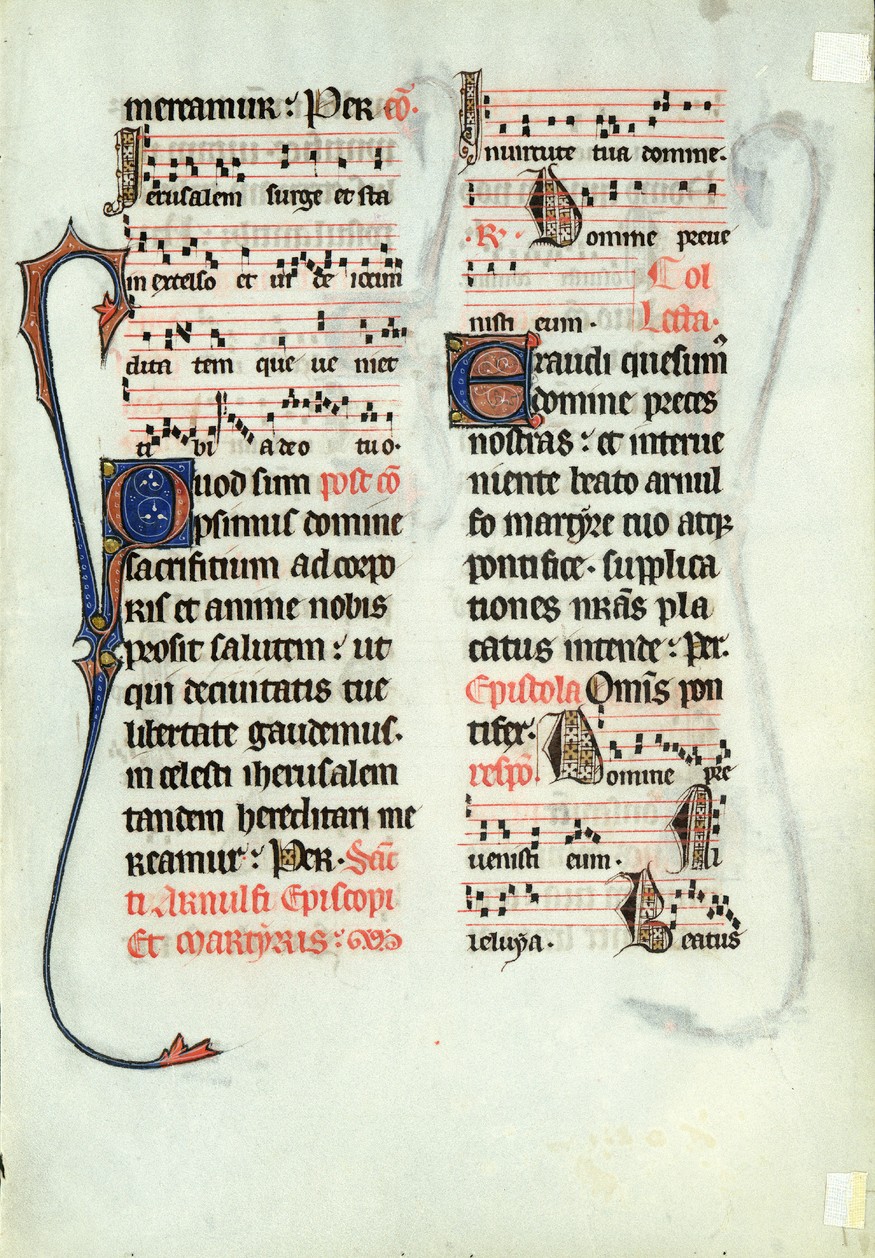 mereamur : Per cō.
Jerusalem surge et sta
in excelso et vi de iocun
dita tem que ve niet
ti bi a deo tuo.
Quod sum post cō
psimus domine
sacrificium ad corpo
ris et anime nobis
prosit salutem : ut
qui deciuitatis tue
libertate gaudemus.
in celesti iherusalem
tandem hereditari me
reamur : Per. Sanc
ti Arnulfi Episcopi
Et Martyris :
In uirtute tua domine.
.R. Domine preue
nisti eum. Col
lecta.
Exaudi quesum̄
domine preces
nostras : et interue
niente beato arnul
fo martyre tuo atqꝫ
pontifice. supplica
tiones nr̄as pla
catus intende : Per.
Epistola Omīs pon
tifex.
respō. Domine pre
uenisti eum. Al
leluya. Beatus